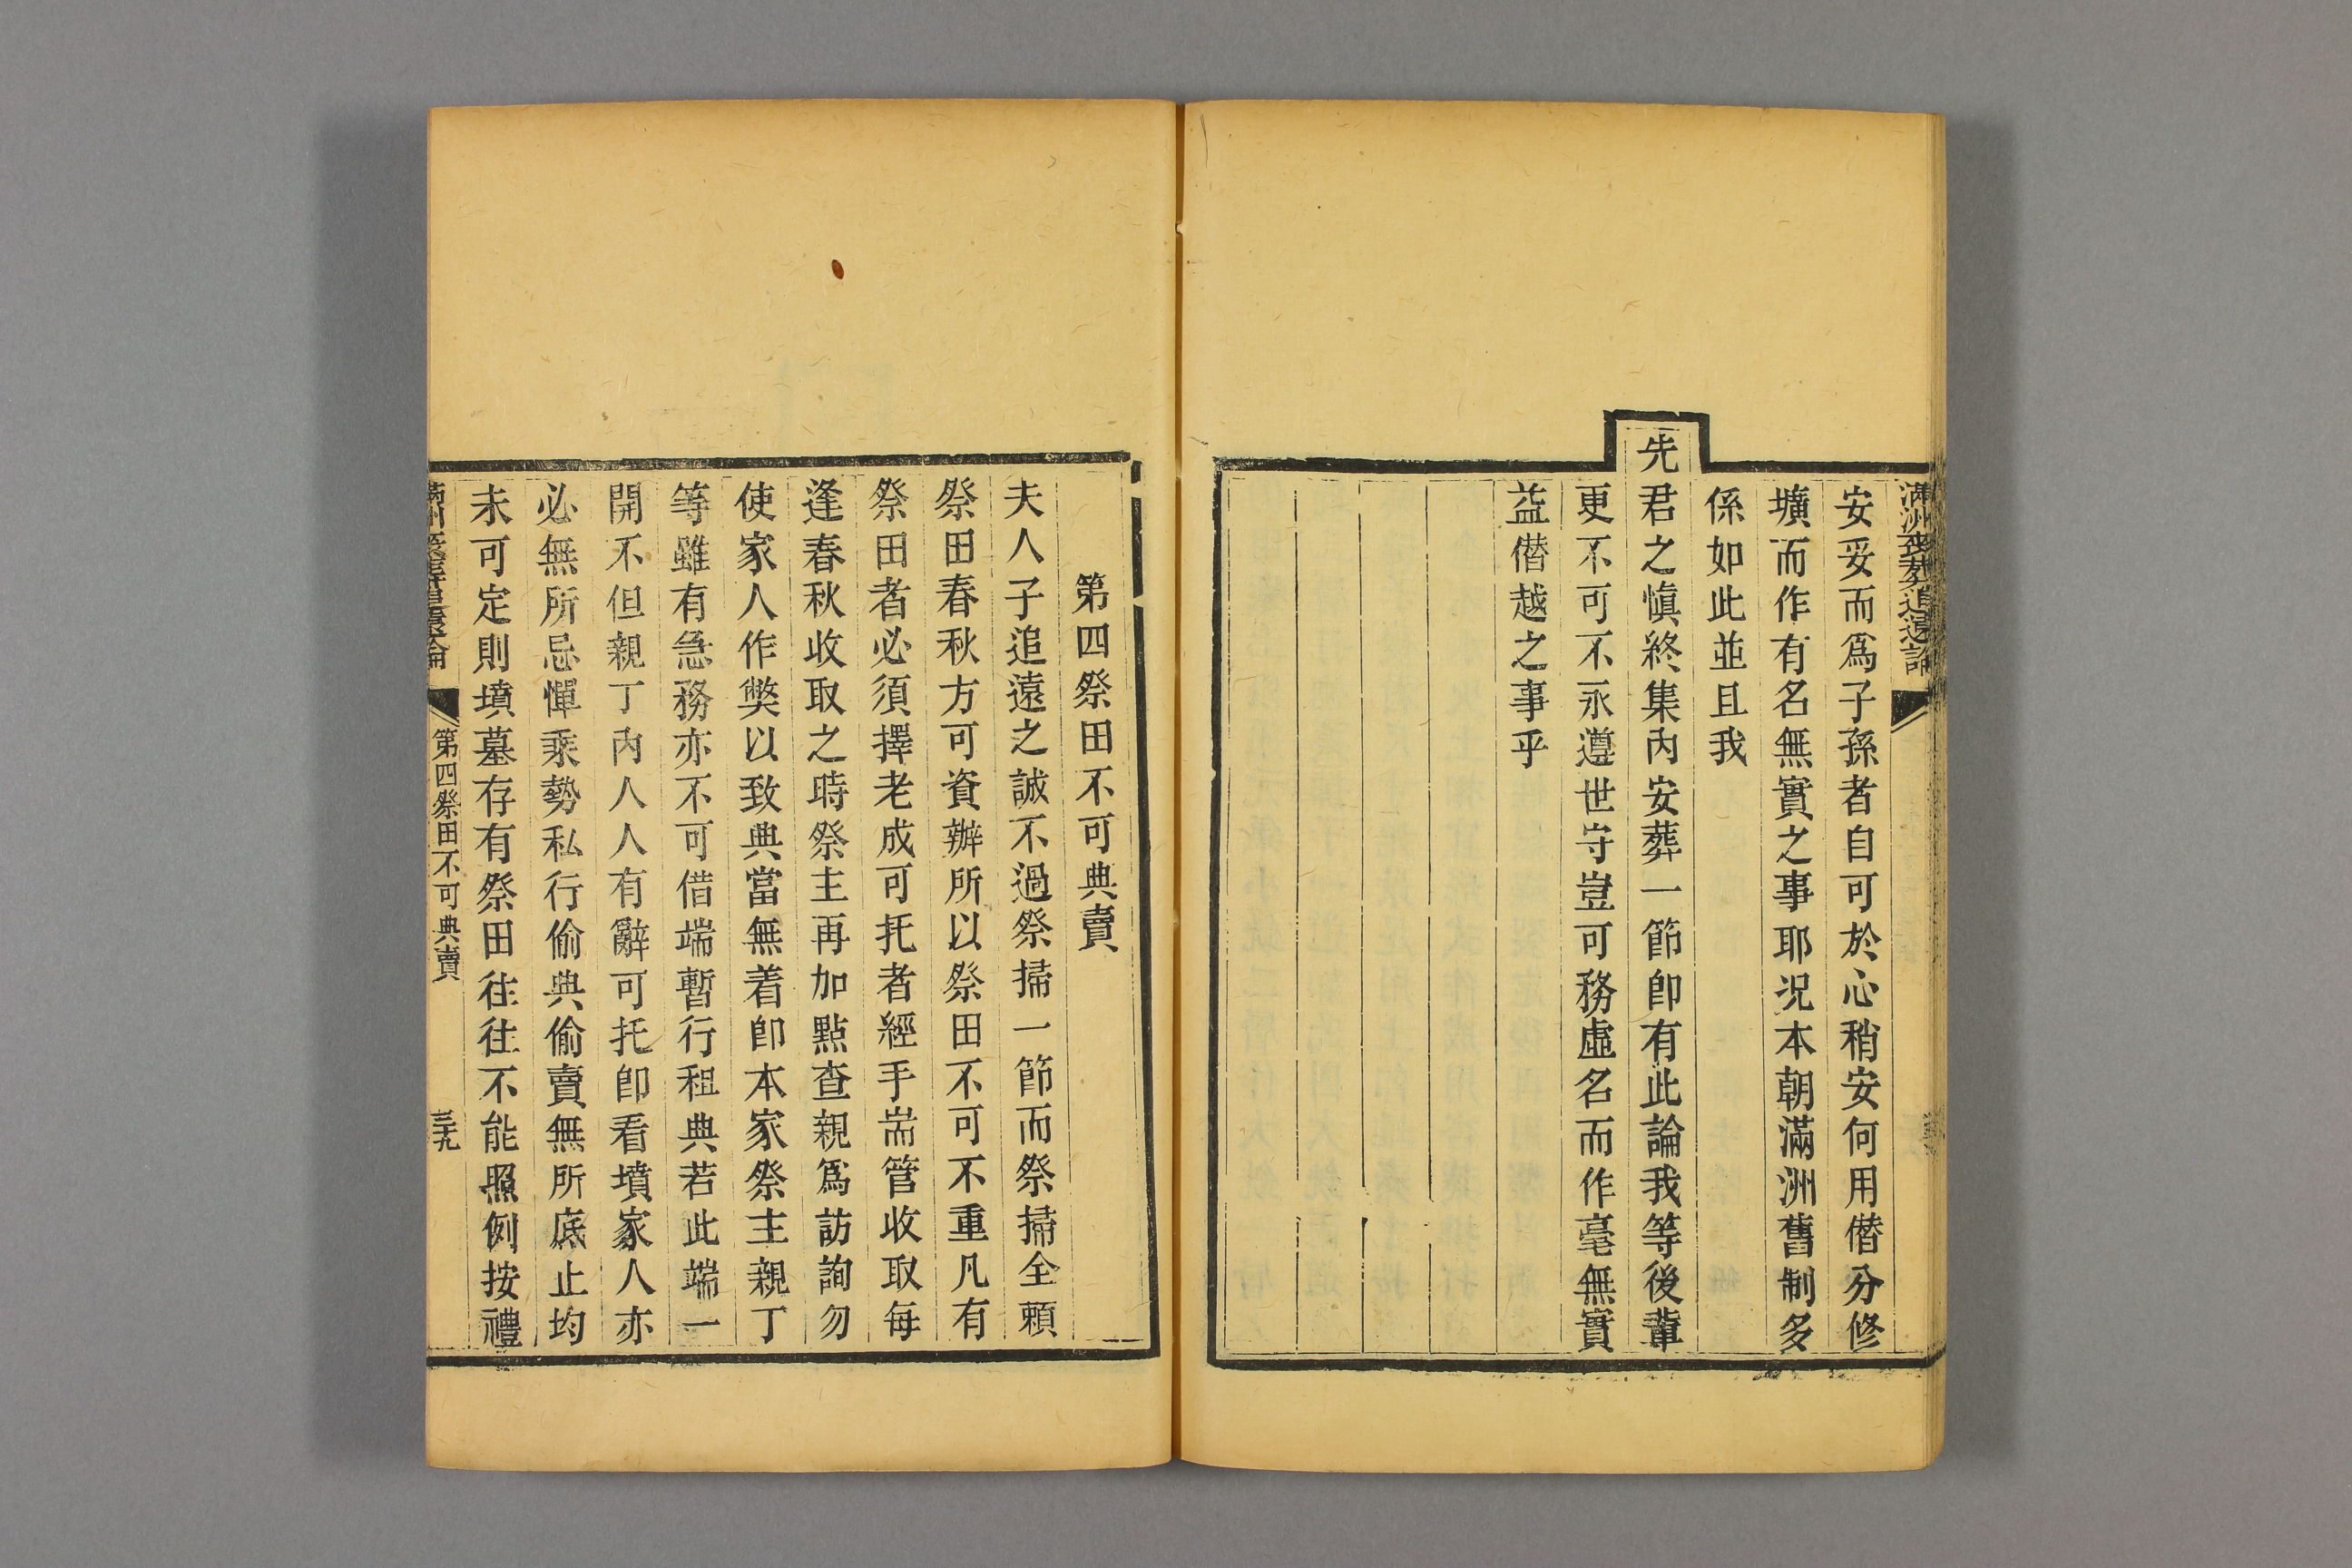 滿洲喪葬追遠論
安妥而爲子孫者自可於心稍安何用僭分修
壙而作有名無實之事耶況本朝滿洲舊制多
係如此並且我
先君之愼終集內安葬一節卽有此論我等後輩
更不可不永遵世守豈可務虛名而作毫無實
益僭越之事乎
第四祭田不可典賣
夫人子追遠之誠不過祭掃一節而祭掃全賴
祭田春秋方可資辦所以祭田不可不重凡有
祭田者必須擇老成可托者經手耑管收取每
逢春秋收取之時祭主再加點查親爲訪詢勿
使家人作獘以致典當無着卽本家祭主親丁
等雖有急務亦不可借端暫行租典若此端一
開不但親丁內人人有辭可托卽看墳家人亦
必無所忌憚乘勢私行偷典偷賣無所底止均
未可定則墳墓存有祭田往往不能照例按禮
滿洲喪葬追遠論 第四祭田不可典賣 三十九